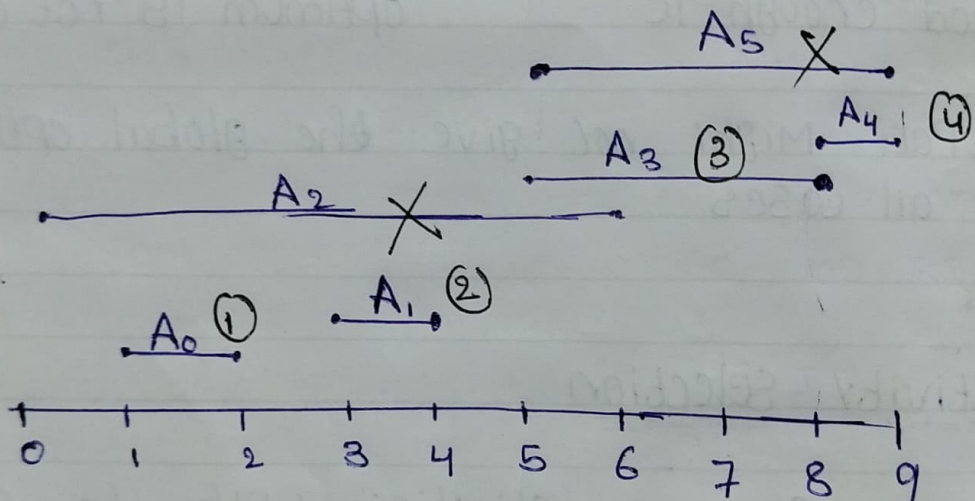 A5
A4 ④
A3 ③
A2
A1 ②
A0 ①
0 1 2 3 4 5 6 7 8 9